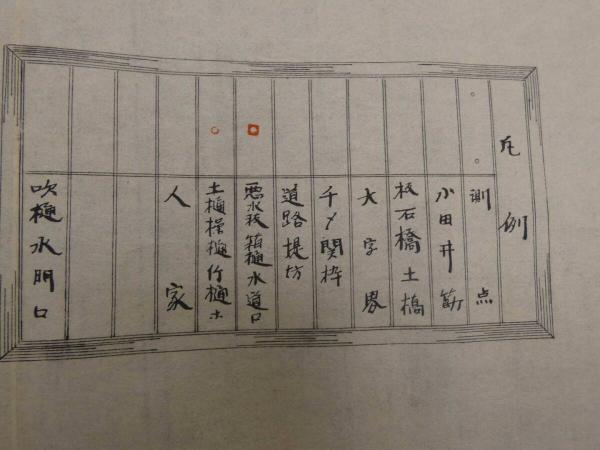 凡例
測点
小田井筋
板石橋土橋
大字界
千〆関枠
道路堤坊
悪水抜箱樋水道口
土樋掛樋竹樋
人家
吹樋水門口